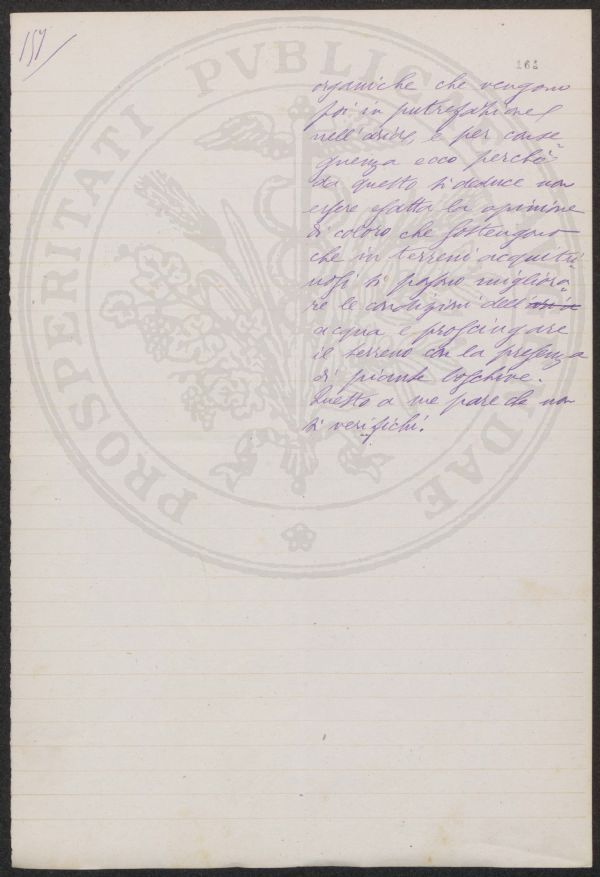 157
161
organiche che vengono
poi in putrefazione
nell'aria, e per conse
guenza ecco perchè
da questo si deduce non
essere esatta la opinione
di coloro che sostengono
che in terreni acquitri
nosi si possono migliora
re le condizioni dell'aria
acqua e prosciugare
il terreno con la presenza
di piante boschive.
Questo a me pare che non
si verifichi.
PROSPERITATI PVBLICAE